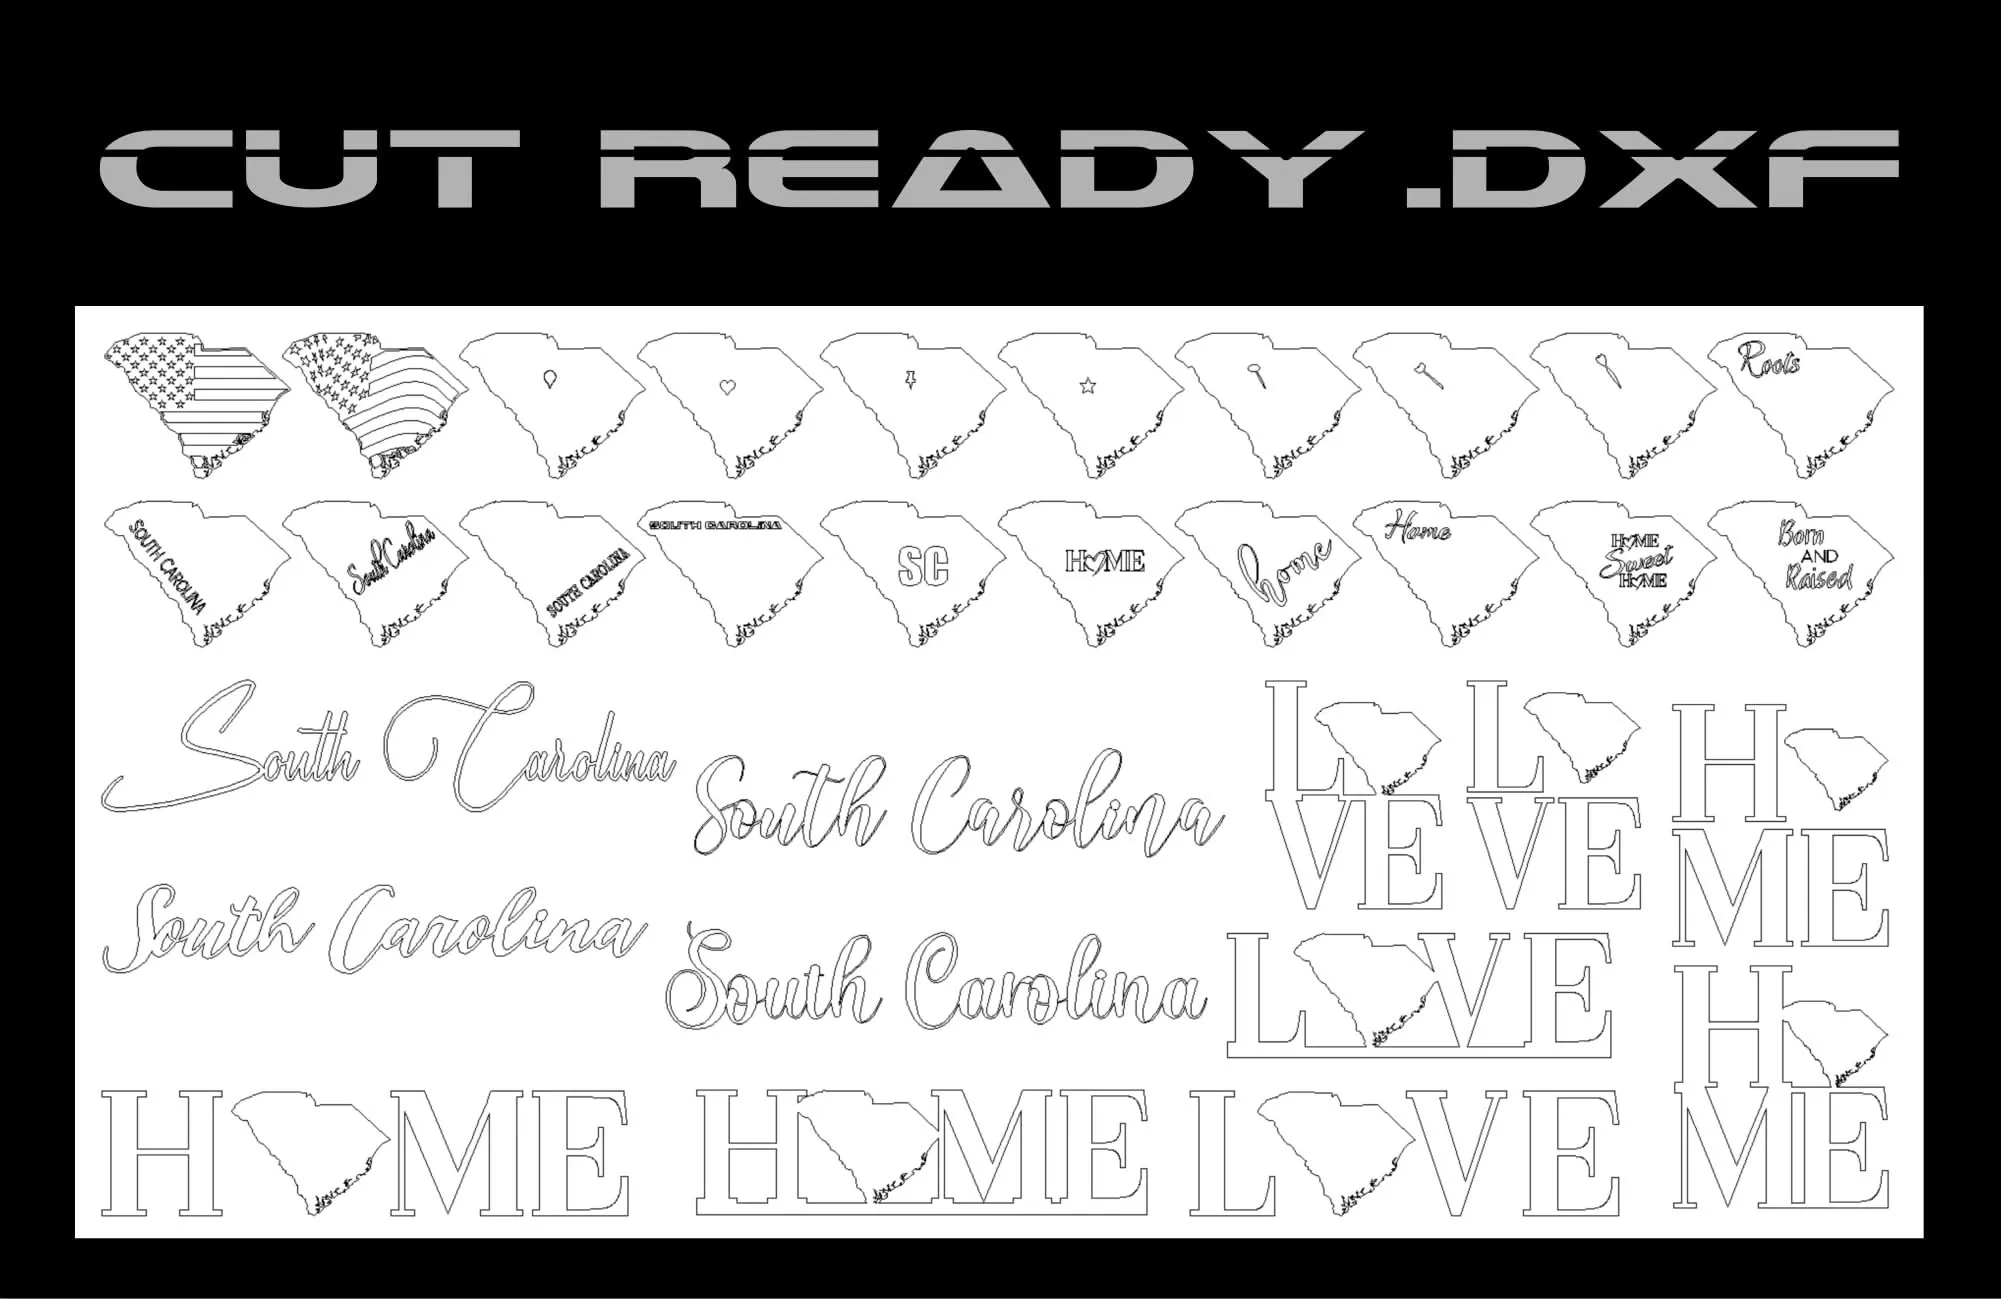 CUT READY .DXF
Roots
SOUTH CAROLINA
South Carolina
SOUTH CAROLINA
SOUTH CAROLINA
SC
HOME
home
Home
HOME
Sweet
HOME
Born
AND
Raised
South Carolina
South Carolina
L
VE
L
VE
H
ME
South Carolina
South Carolina
L VE
H
ME
H ME
H ME
L VE